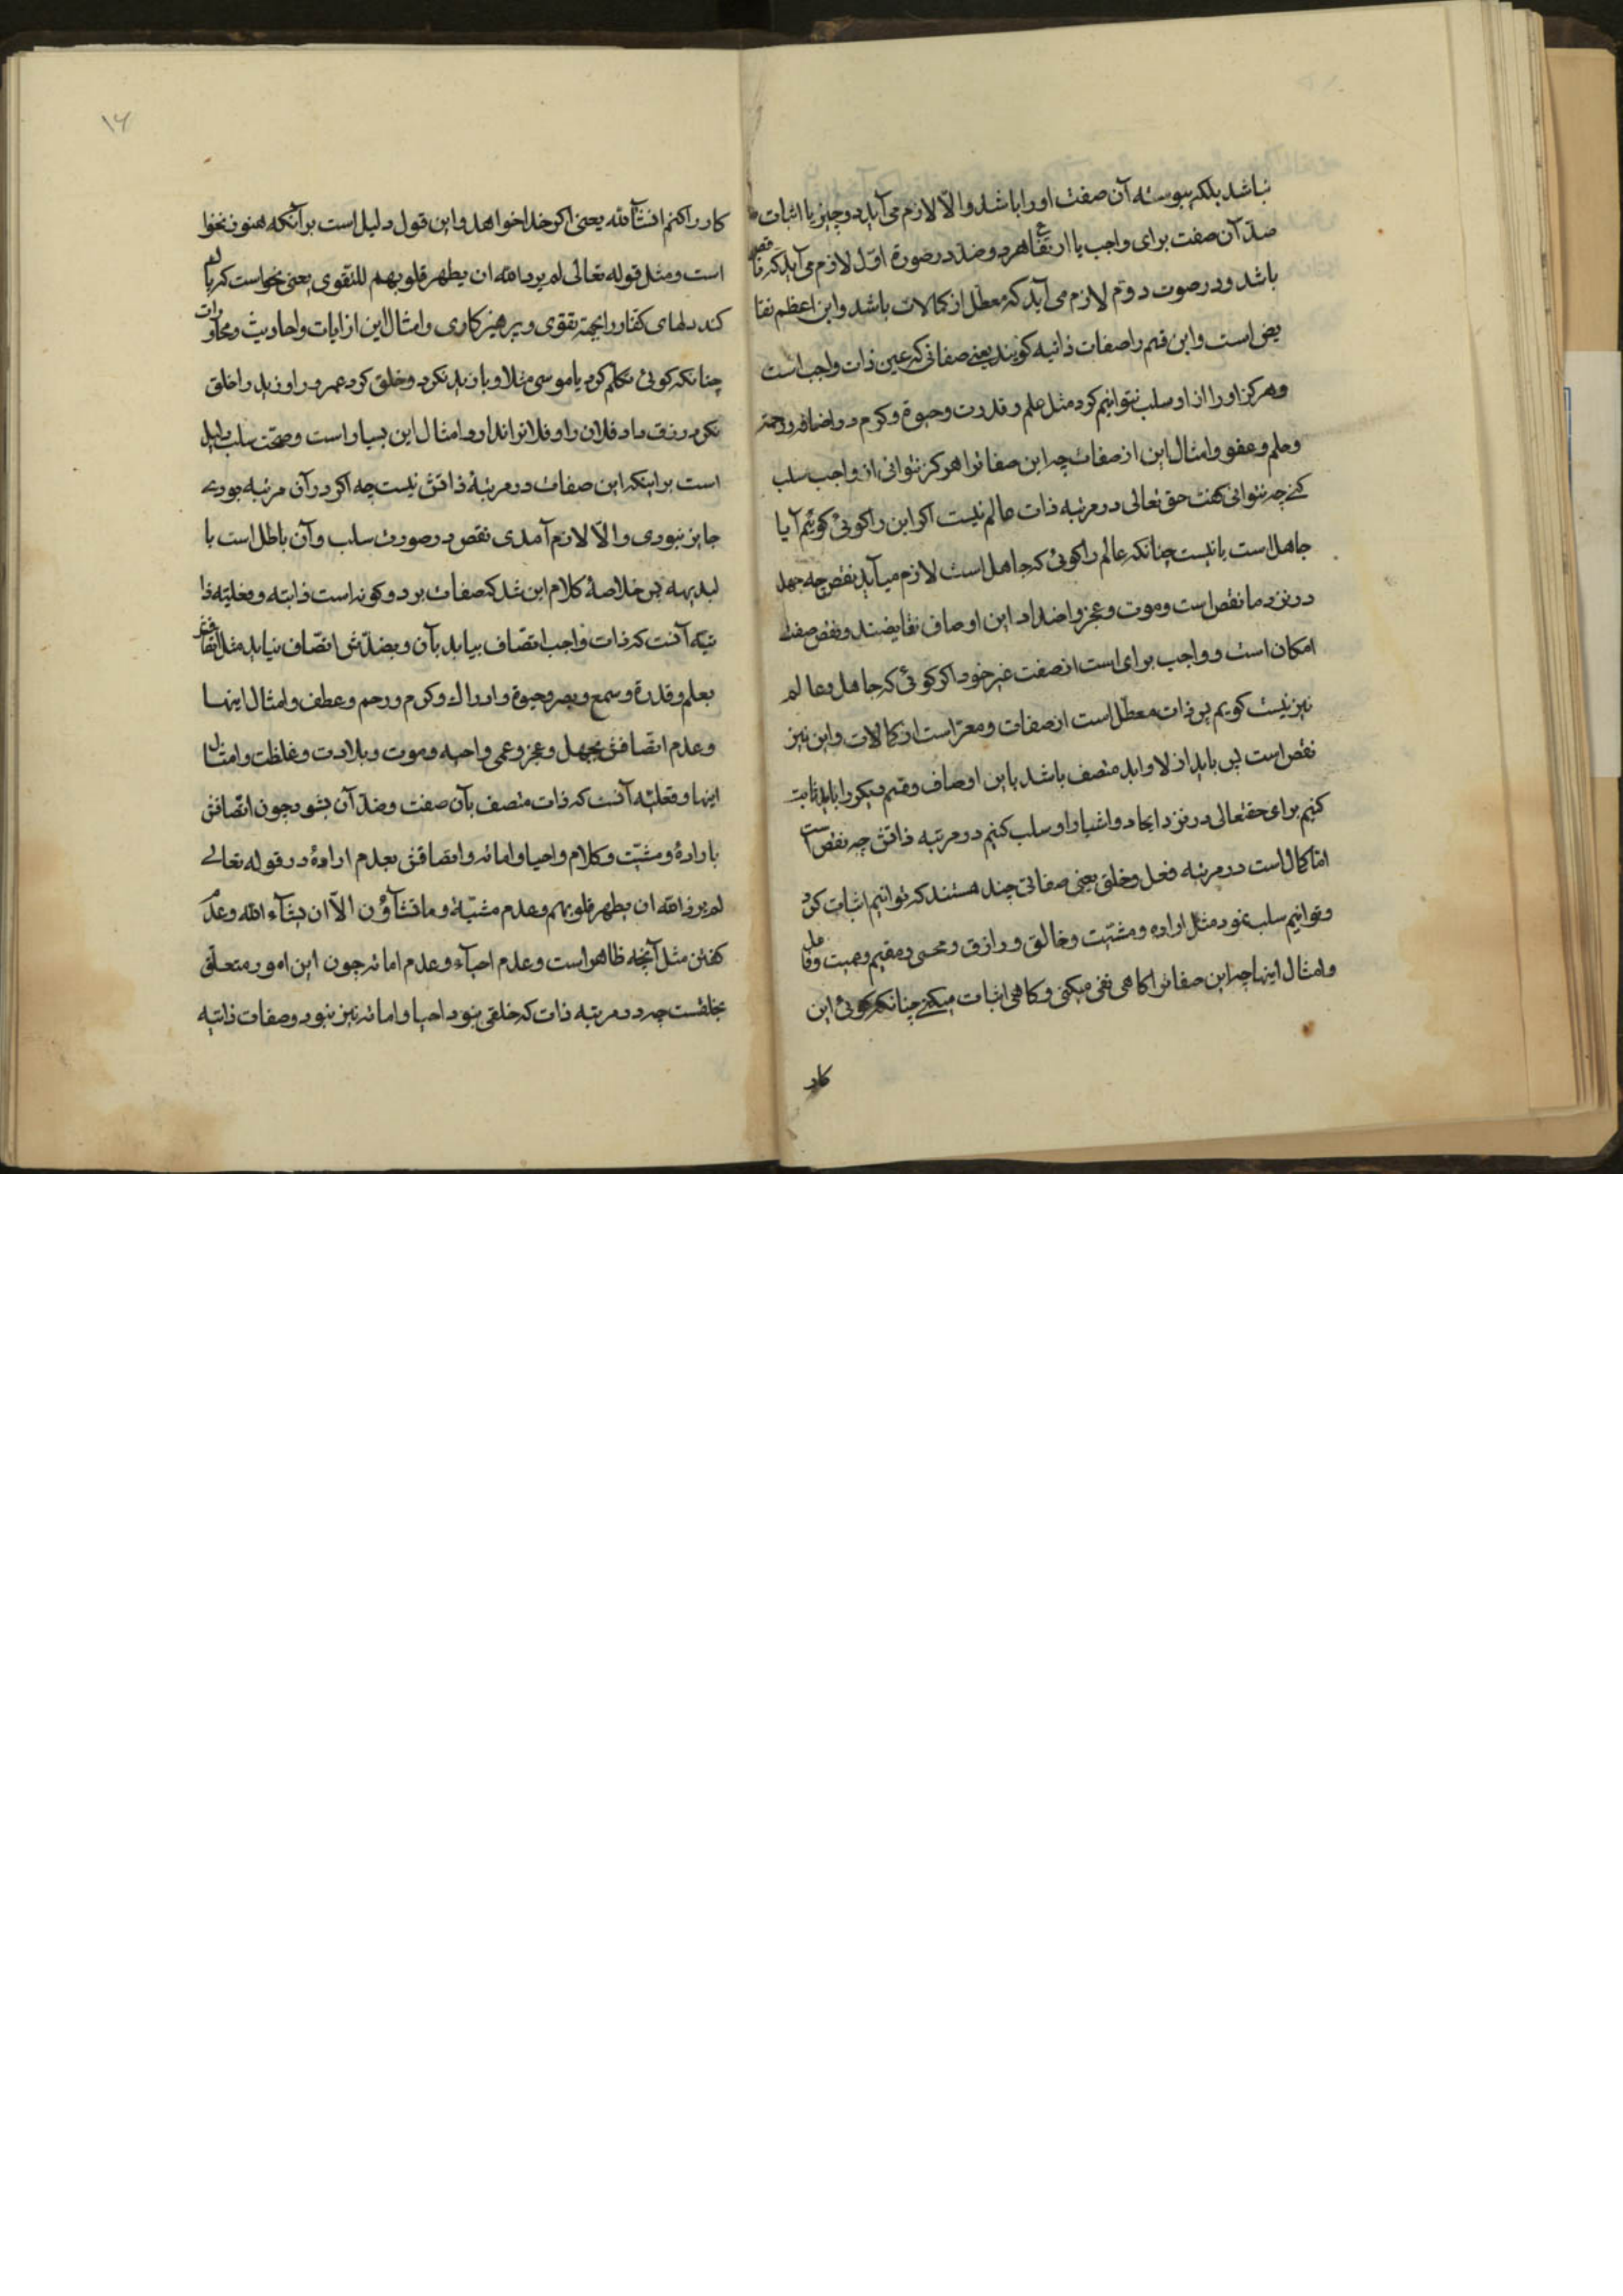 نباشد بلکه پیوسته آن صفت او را باشد والّا لازم می آید دو چیز یا اثبات
ضدّ آن صفت برای واجب یا ارتفاع هر دو ضد در صورة اوّل لازم می آید که ناقص
باشد و در صوت دوّم لازم می آید که معطّل از کمالات باشد و این اعظم نقا
یص است و این قسم را صفات ذاتیه کویند یعنی صفاتی که عین ذات واجب است
و هرکز او را از او سلب نتوانیم کرد مثل علم و قدرت و حیوة و کرم و
و حلم و عفو و امثال این از صفات چه این صفاترا هرکز نتوانی از واجب سلب
کنی چه نتوانی کفت حق تعالی در مرتبه ذات عالم نیست اکر این را کوئی کوئیم آیا
جاهل است یا نیست چنانکه عالم را کوئی که جاهل است لازم میآید نقص چه جهل
در نزد ما نقص است و موت و عجز و اضداد این اوصاف نقایضند و نقص صفت
امکان است و واجب بری است از صفت غیر خود اکر کوئی که جاهل و عالم
نیز نیست کویم پس ذات معطّل است از صفات و معرّاست از کمالات و این نیز
نقص است پس باید ازلا و ابد متصف باشد باین اوصاف و قسم دیکر را باید ثابت
کنیم برای حقتعالی در نزد ایجاد و اشیا و از او سلب کنیم در مرتبه ذاتش چه نقص است
امّا کمال است در مرتبه فعل و خلق یعنی صفاتی چند هستند که توانیم اثبات کرد
و توانیم سلب نمود مثل اراده و مشیّت و خالق و رازق و محیی و مقیم و ممیت و فاعل
و امثال اینها چه این صفاترا کاهی نفی میکنی و کاهی اثبات میکنی چنانکه کوئی این
کار
۱۶
کار را کنم انشآءالله یعنی اکر خدا خواهد و این قول دلیل است بر آنکه هنوز نخوا
است و مثل قوله تعالی لم یرد الله ان یطهر قلوبهم للتقوی یعنی نخواست که پاک
کند دلهای کفار را بجهة تقوی و پرهیزکاری و امثال این از ایات و احادیث و محاورات
چنانکه کوئی تکلم کرد با موسی مثلا و با زید نکرد و خلق کرد عمرو را و زید را خلق
نکرد رزق داد فلان را و فلانرا نداد و امثال این بسیار است و صحّت سلب دلیل
است بر اینکه این صفات در مرتبهٔ ذاتش نیست چه اکر در آن مرتبه بودی
جایز نبودی والّا لازم آمدی نقص در صورت سلب و آن باطل است با
لبدیهه پس خلاصهٔ کلام این شد که صفات بر دو کونه است ذاتیه و فعلیّه ذا
تیّه آنست که ذات واجب اتصّاف بیابد بآن و بضدّش اتصّاف نیابد مثل اتّصافش
بعلم و قدرة و سمع و بصر و حیوة و ادراک و کرم و رحم و عطف و امثال اینها
و عدم اتصّافش بجهل و عجز و عمی و و موت و بلادت و غلظت و امثال
اینها و فعلیّه آنست که ذات متصف بآن صفت و ضدّ آن بشود چون اتصّافش
بارادهٔ و مشیّت و کلام و احیا و اماته و اتصافش بعدم ارادهٔ در قوله تعالی
لم یرد الله ان یطهر قلوبهم و عدم مشیّة و ما تشآؤن الّا ان یشآء الله و عدم
کفتن مثل آنچه ظاهر است و عدم احیآء و عدم اماته چون این امور متعلّق
بخلقست چه در مرتبه ذات که خلقی نبود احیا و اماته نیز نبود و صفات ذاتیه